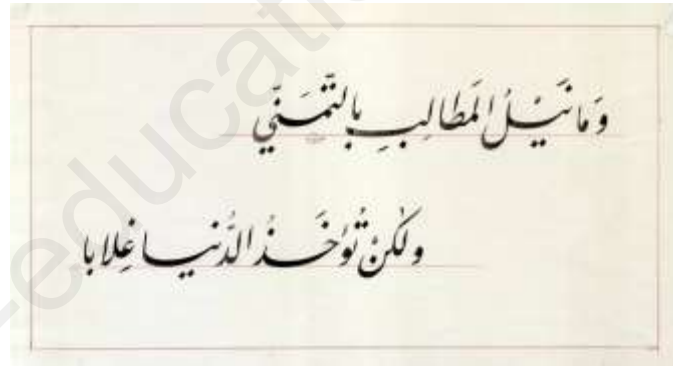 وَمَا نَيْلُ المَطَالِبِ بِالتَّمَنِّي
ولَكِنْ تُؤْخَذُ الدُّنيا غِلابا